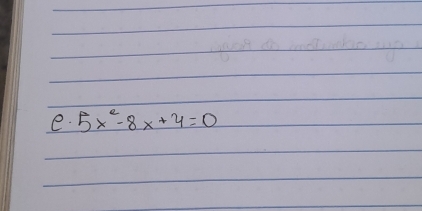 e. 5x²-8x+4=0